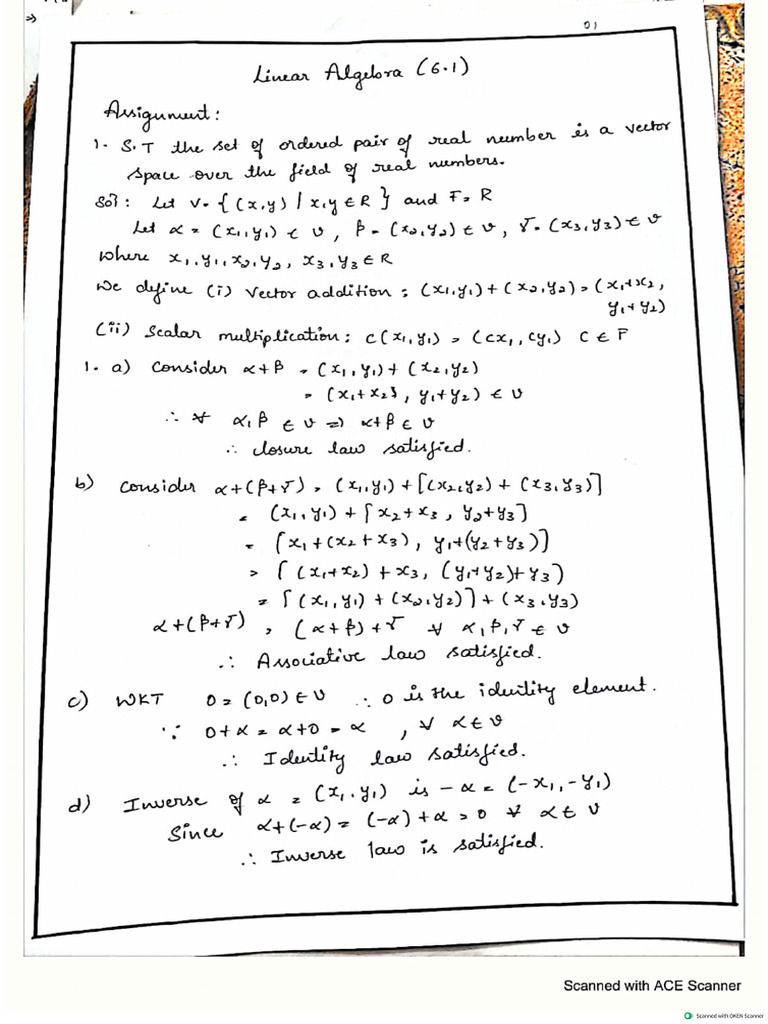 ⇒
01
Linear Algebra (6.1)
Assignment:
1. S.T the set of ordered pair of real number is a vector
space over the field of real numbers.
Sol: Let V = { (x,y) / x,y ∈ R } and F = R
Let α = (x₁,y₁) ∈ V, β = (x₂,y₂) ∈ V, γ = (x₃,y₃) ∈ V
where x₁,y₁,x₂,y₂, x₃,y₃ ∈ R
We define (i) Vector addition : (x₁,y₁) + (x₂,y₂) = (x₁+x₂,
y₁+y₂)
(ii) Scalar multiplication: c(x₁,y₁) = (cx₁, cy₁) c ∈ F
1. a) Consider α+β = (x₁,y₁) + (x₂,y₂)
= (x₁+x₂, y₁+y₂) ∈ V
∴ ∀ α,β ∈ V ⇒ α+β ∈ V
∴ closure law satisfied.
b) Consider α+(β+γ) = (x₁,y₁) + [(x₂,y₂) + (x₃,y₃)]
= (x₁,y₁) + [x₂+x₃, y₂+y₃]
= [x₁+(x₂+x₃), y₁+(y₂+y₃)]
= [(x₁+x₂)+x₃, (y₁+y₂)+y₃)
= [(x₁,y₁) + (x₂,y₂)] + (x₃,y₃)
α+(β+γ) = (α+β)+γ ∀ α,β,γ ∈ V
∴ Associative law satisfied.
c) WKT 0 = (0,0) ∈ V ∴ 0 is the identity element.
∵ 0+α = α+0 = α , ∀ α ∈ V
∴ Identity law satisfied.
d) Inverse of α = (x₁,y₁) is -α = (-x₁,-y₁)
Since α+(-α) = (-α)+α = 0 ∀ α ∈ V
∴ Inverse law is satisfied.
Scanned with ACE Scanner
Scanned with OKEN Scanner